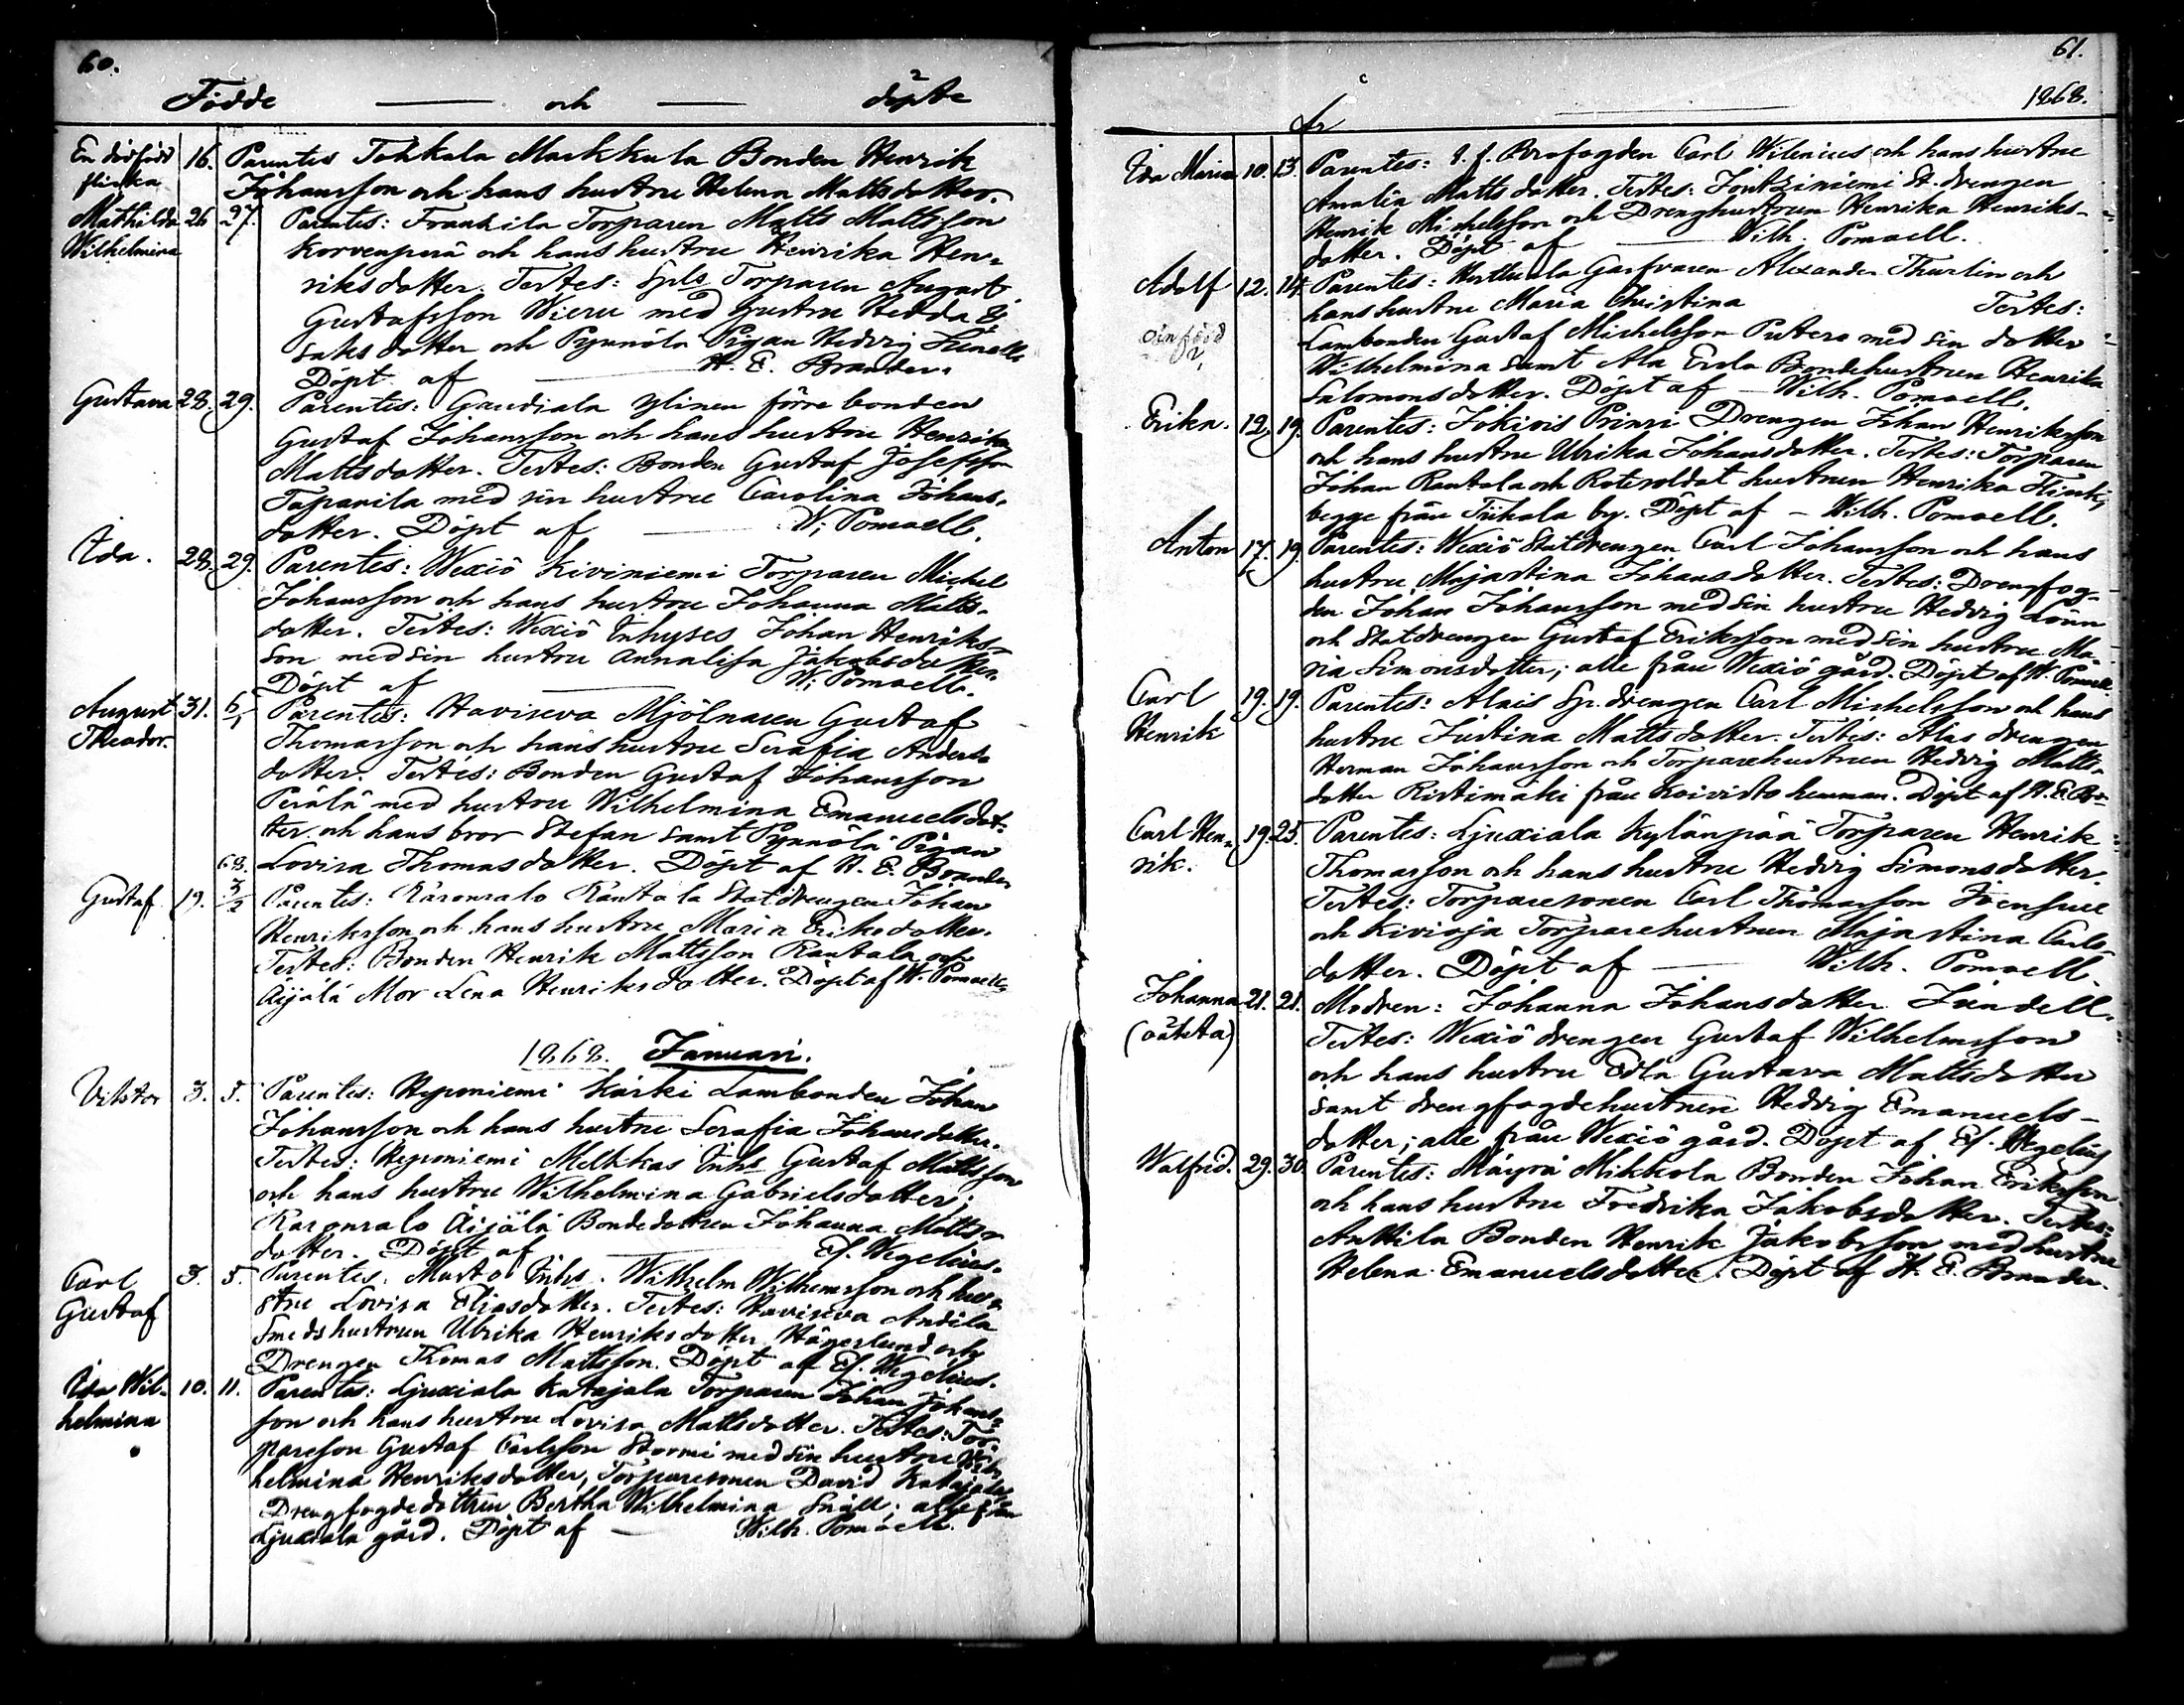 60.
Födde — och — döpte
En dödfödd flicka 16. Parentes Tohkala Markkula Bonden Henrik
Johansson och hans hustru Helena Mattsdotter.
Mathilda 26 27. Parentes: Frankila Torparen Matts Mattsson
Wilhelmina Korvenperä och hans hustru Henrika Hen-
riksdotter. Testes: Torparen August
Gustafsson Wieru med hustru Hedda
saksdotter och Pynnölä Pigan Hedvig
Döpt af — H. E. Brander.
Gustava 28. 29. Parentes: Gaudiala Ylinen förre bonden
Gustaf Johansson och hans hustru Henrika
Mattsdotter. Testes: Bonden Gustaf Josefsson
Tapanila med sin hustru Carolina Johans-
dotter. Döpt af — W; Pomoell.
Ida. 28. 29. Parentes: Wexiö Kiviniemi Torparen Michel
Johansson och hans hustru Johanna Matts-
dotter. Testes: Wexiö Inhyses Johan Henriks-
son med sin hustru Annalisa Jakobsdotter.
Döpt af — W; Pomoell.
August 31. 6/1 Parentes: Haviseva Mjölnaren Gustaf
Theodor. Thomasson och hans hustru Serafia Anders-
dotter. Testes: Bonden Gustaf Johansson
Perälä med hustru Wilhelmina Emanuelsdot-
ter och hans bror Stefan samt Pynnölä Pigan
68. Lovisa Thomasdotter. Döpt af H. E. Brander
Gustaf 19. 3/2 Parentes: Räronsalo Rantala Statdrengen Johan
Henriksson och hans hustru Maria Eriksdotter.
Testes: Bonden Henrik Mattsson Rantala och
Äijälä Mor Lena Henriksdotter. Döpt af W. Pomoell.
1868. Januari.
Viktor 3. 5. Parentes: Heponiemi Kärki Lambonden Johan
Johansson och hans hustru Serafia Johansdotter.
Testes: Heponiemi Melkkas Inhs Gustaf Mattsson
och hans hustru Wilhelmina Gabrielsdotter;
Räronsalo Äijälä Bondedottren Johanna Matts-
dotter. Döpt af — Ef. Hegelius.
Carl 3. 5. Parentes: Musto Inhs. Wilhelm Wilhemsson och hu-
Gustaf stru Lovisa Eliasdotter. Testes: Haviseva Andila
Smedshustrun Ulrika Henriksdotter Hägerlund och
Drengen Thomas Mattsson. Döpt af Ef. Hegelius.
Ida Wil- 10. 11. Parentes: Ljuxiala Katajala Torparen Johan Johans-
helmina son och hans hustru Lovisa Mattsdotter. Testes: Tor-
paresson Gustaf Carlsson Stormi med sin hustru Wil-
helmina Henriksdotter, Torparesonen David Katajala
Drengfogdedottren Bertha Wilhelmina Snäll; alla från
Ljuxiala gård. Döpt af — Wilh. Pomoell.
61.
År — 1868.
Ida Maria 10. 13. Parentes: f. f. Brofogden Carl Wilenius och hans hustru
Amalia Mattsdotter. Testes: Jontziniemi St. drengen
Henrik Michelsson och Drenghustrun Henrika Henriks-
dotter. Döpt af — Wilh. Pomoell.
Adolf 12. 14. Parentes: Herttuala Garfvaren Alexander Thurlin och
hans hustru Maria Christina Testes:
Lambonden Gustaf Michelsson Putero med sin dotter
Wilhelmina samt Ala Erola Bondehustrun Henrika
Salomonsdotter. Döpt af — Wilh. Pomoell.
Erika. 12. 19. Parentes: Jokivis Prinri Drengen Johan Henriksson
och hans hustru Ulrika Johansdotter. Testes: Torparen
Johan Rantala och Rotesoldat hustrun Henrika
begge från Tiihala by. Döpt af — Wilh. Pomoell.
Anton 17. 19. Parentes: Wexiö Statdrengen Carl Johansson och hans
hustru Majastina Johansdotter. Testes: Drengfog-
den Johan Johansson med sin hustru Hedvig Lönn
och Statdrengen Gustaf Eriksson med sin hustru Ma-
ria Simonsdotter; alla från Wexiö gård. Döpt af W. Pomoell.
Carl 19. 19. Parentes: Alais Sp. drengen Carl Michelsson och hans
Henrik hustru Justina Mattsdotter. Testes: Alas drengen
Herman Johansson och Torparehustrun Hedvig Matts-
dotter Ristimäki från Koivisto hemman. Döpt af H. E. Br-
Carl Hen- 19. 25. Parentes: Ljuxiala Kylänpää Torparen Henrik
rik. Thomasson och hans hustru Hedvig Simonsdotter.
Testes: Torparesonen Carl Thomasson Joensuu
och Kivioja Torparehustrun Majastina Carls-
dotter. Döpt af — Wilh. Pomoell.
Johanna 21. 21. Modren: Johanna Johansdotter Lindell.
(oäkta) Testes: Wexiö drengen Gustaf Wilhelmsson
och hans hustru Edla Gustava Mattsdotter
samt drengfogdehustrun Hedvig Emanuels-
dotter; alle från Wexiö gård. Döpt af Ef. Hegelius
Walfrid. 29. 30. Parentes: Mäyrä Mikkola Bonden Johan Eriksson
och hans hustru Fredrika Jakobsdotter. Testes:
Anttila Bonden Henrik Jakobsson med hustru
Helena Emanuelsdotter. Döpt af H. E. Brander.